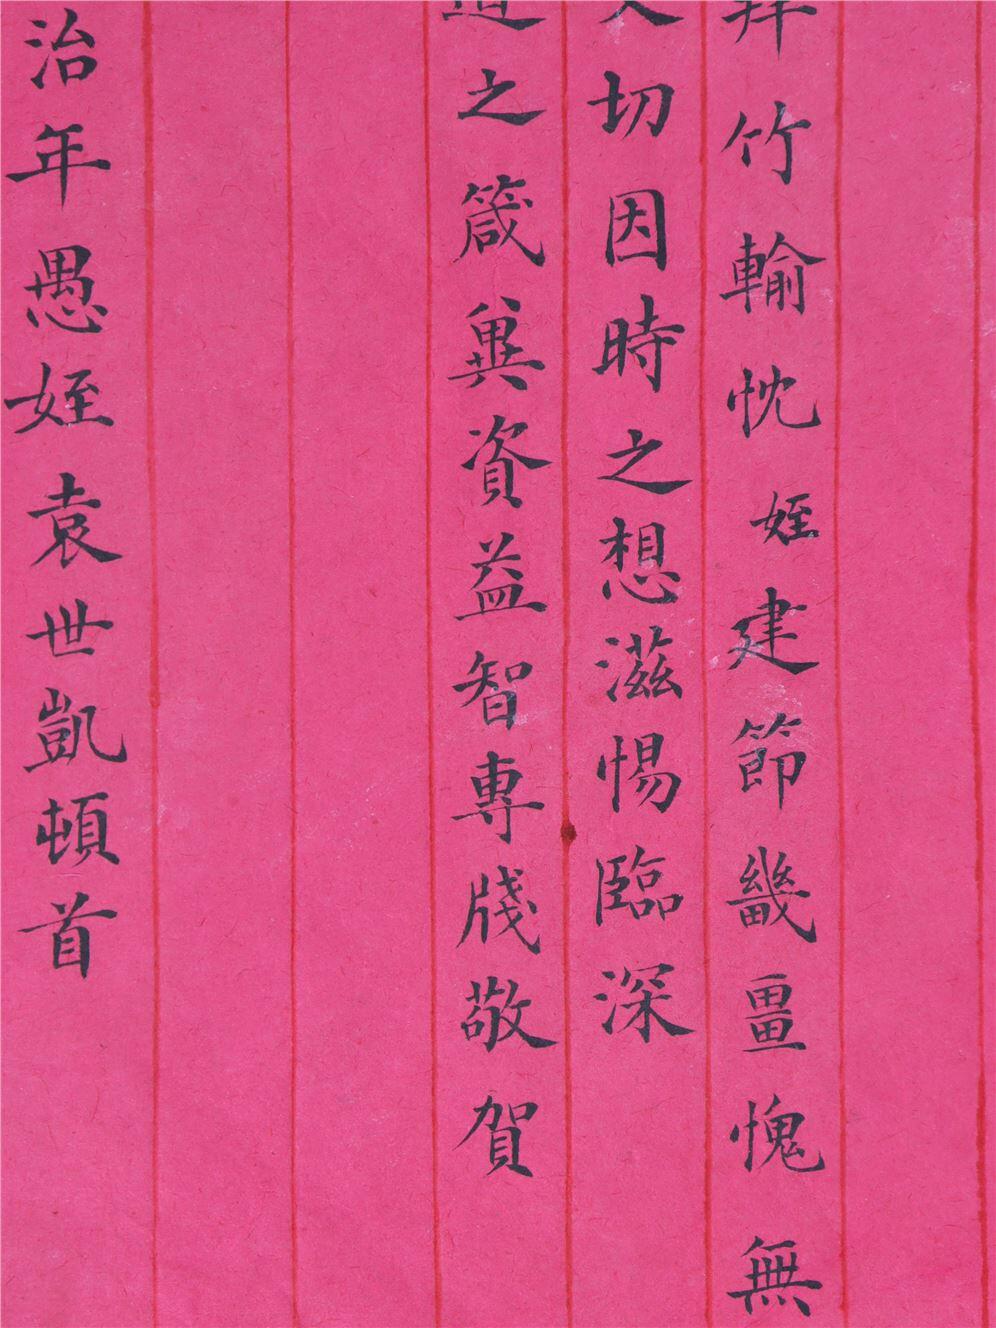 拜竹輸忱姪建節畿畺愧無
切因時之想滋惕臨深
道之箴冀資益智專牋敬賀
治年愚姪袁世凱頓首